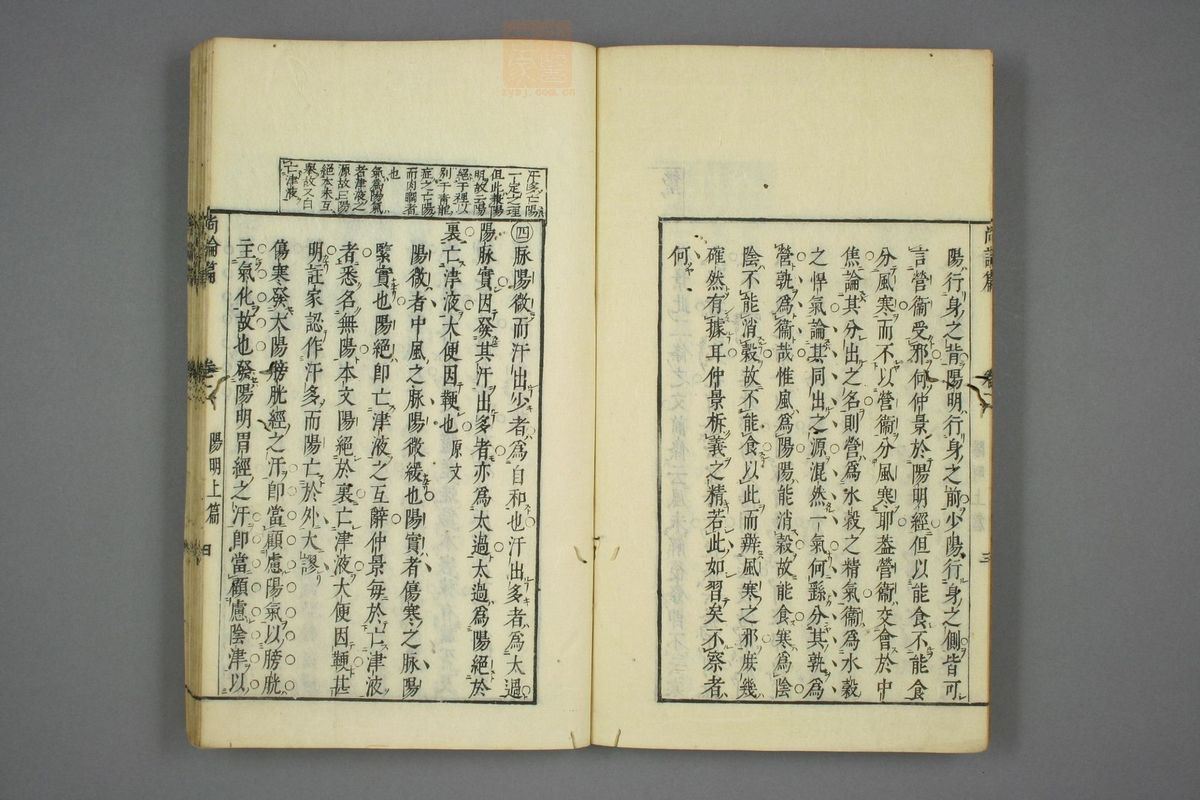 陽行身之背陽明行身之前少陽行身之側皆可
言營衞受邪何仲景於陽明經但以能食不能食
分風寒而不以營衞分風寒耶蓋營衞交會於中
焦論其分出之名則營爲水穀之精氣衞爲水穀
之悍氣論其同出之源混然一氣何繇分其孰爲
營孰爲衞哉惟風爲陽陽能消穀故能食寒爲陰
陰不能消穀故不能食以此而辨風寒之邪庶幾
確然有據耳仲景析義之精若此如習矣不察者
何
汗多亡陽
一定之理
但此兼陽
明故云陽
絕于裡以
別于青龍
症之亡陽
而肉瞤者
也
氣爲陽氣
者津液之
源故曰陽
絕本末互
舉故又曰
亡津液
㊃脉陽微而汗出少者爲自和也汗出多者爲太過
陽脉實因發其汗出多者亦爲太過太過爲陽絕於
裏亡津液大便因鞕也 原文
陽微者中風之脉陽微緩也陽實者傷寒之脉陽
緊實也陽絕卽亡津液之互辭仲景每於亡津液
者悉名無陽本文陽絕於裏亡津液大便因鞕甚
明註家認作汗多而陽亡於外大謬
傷寒發太陽膀胱經之汗卽當顧慮陽氣以膀胱
主氣化故也發陽明胃經之汗卽當顧慮陰津以
尚論篇
陽明上篇
四
zysj.com.cn